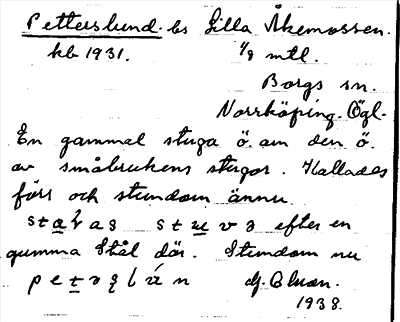 Petterslund. bs Lilla Åkemossen.
hb 1931. 1/8 mtl.
Borgs sn.
Norrköping. Ögl.
En gammal stuga ö. om den ö.
av småbrukens stugor. Kallades
förr och stundom ännu
efter en
gumma Stål där. Stundom nu
1938.